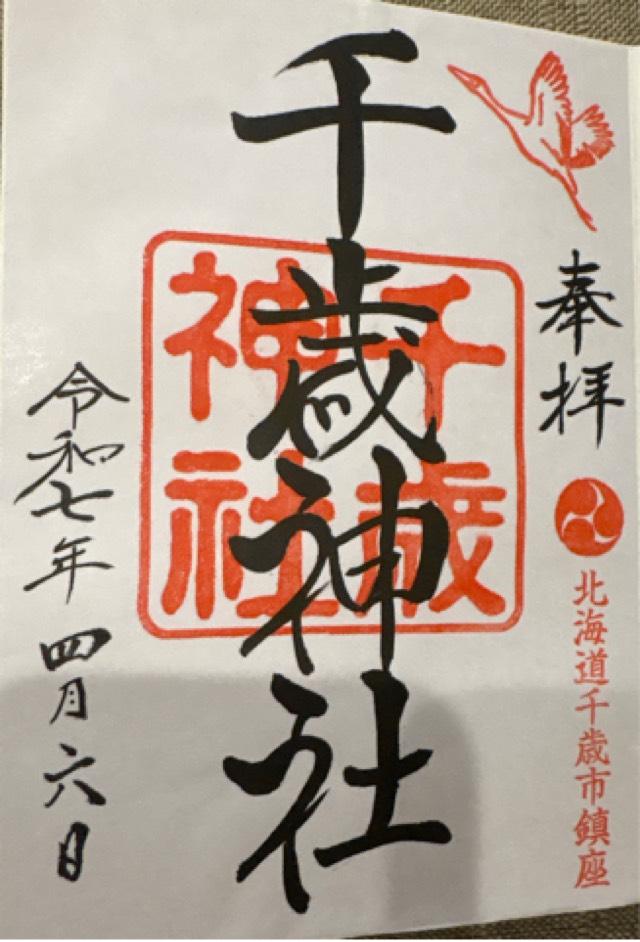 奉拝
北海道千歳市鎮座
千歳神社
千歳
神社
令和七年四月六日